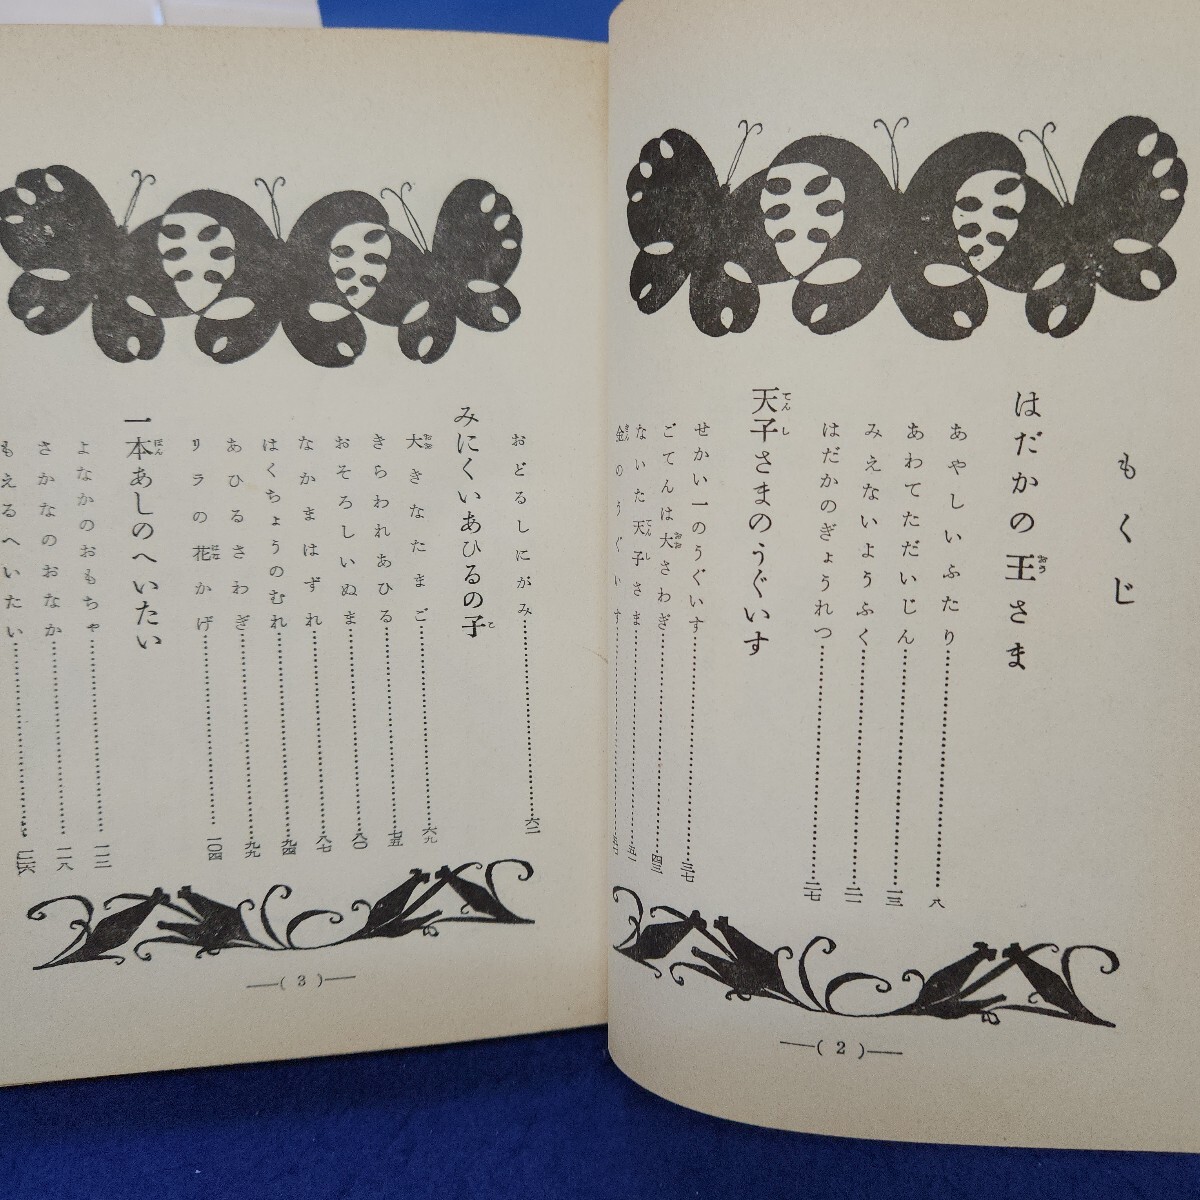 もくじ
はだかの王さま
あやしいふたり……八
あわてただいじん……一三
みえないようふく……二一
はだかのぎょうれつ……二七
天子さまのうぐいす
せかい一のうぐいす……三七
ごてんは大さわぎ……四三
ないた天子さま……五一
金のうぐいす
(2)
おどるしにがみ……六二
みにくいあひるの子
大きなたまご……六九
きらわれあひる……七五
おそろしいぬま……八〇
なかまはずれ……八七
はくちょうのむれ……九四
あひるさわぎ……九九
リラの花かげ……一〇四
一本あしのへいたい
よなかのおもちゃ……一一三
さかなのおなか……一一八
もえるへいたい……一二六
(3)